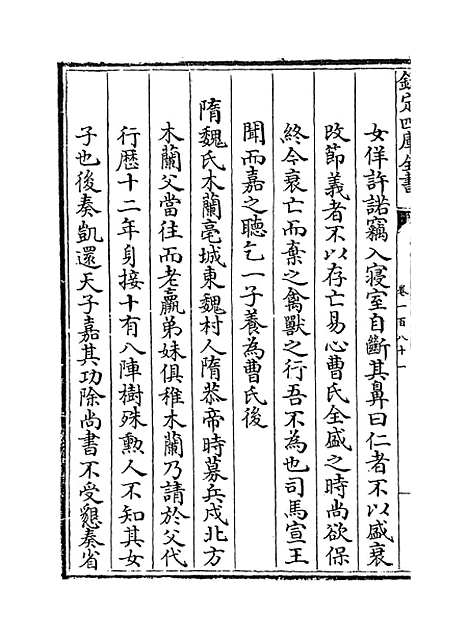 欽定四庫全書
卷一百八十一
女佯許諾竊入寝室自斷其鼻曰仁者不以盛衰
改節義者不以存亡易心曹氏全盛之時尚欲保
終今衰亡而棄之禽獸之行吾不為也司馬宣王
聞而嘉之聽乞一子養為曹氏後
隋魏氏木蘭亳城東魏村人隋恭帝時募兵戍北方
木蘭父當往而老羸弟妹俱稚木蘭乃請於父代
行歴十二年身接十有八陣樹殊勲人不知其女
子也後奏凱還天子嘉其功除尚書不受懇奏省